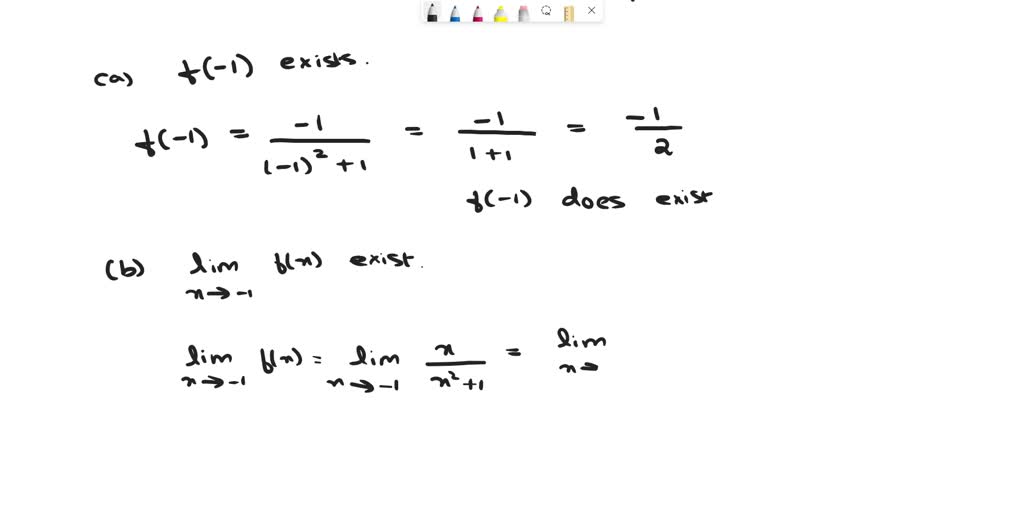 (a) f(-1) exists.
f(-1) = -1/((-1)² + 1) = -1/(1+1) = -1/2
f(-1) does exist
(b) lim f(x) exist.
x→-1
lim f(x) = lim x/(x²+1) = lim
x→-1 x→-1 x→